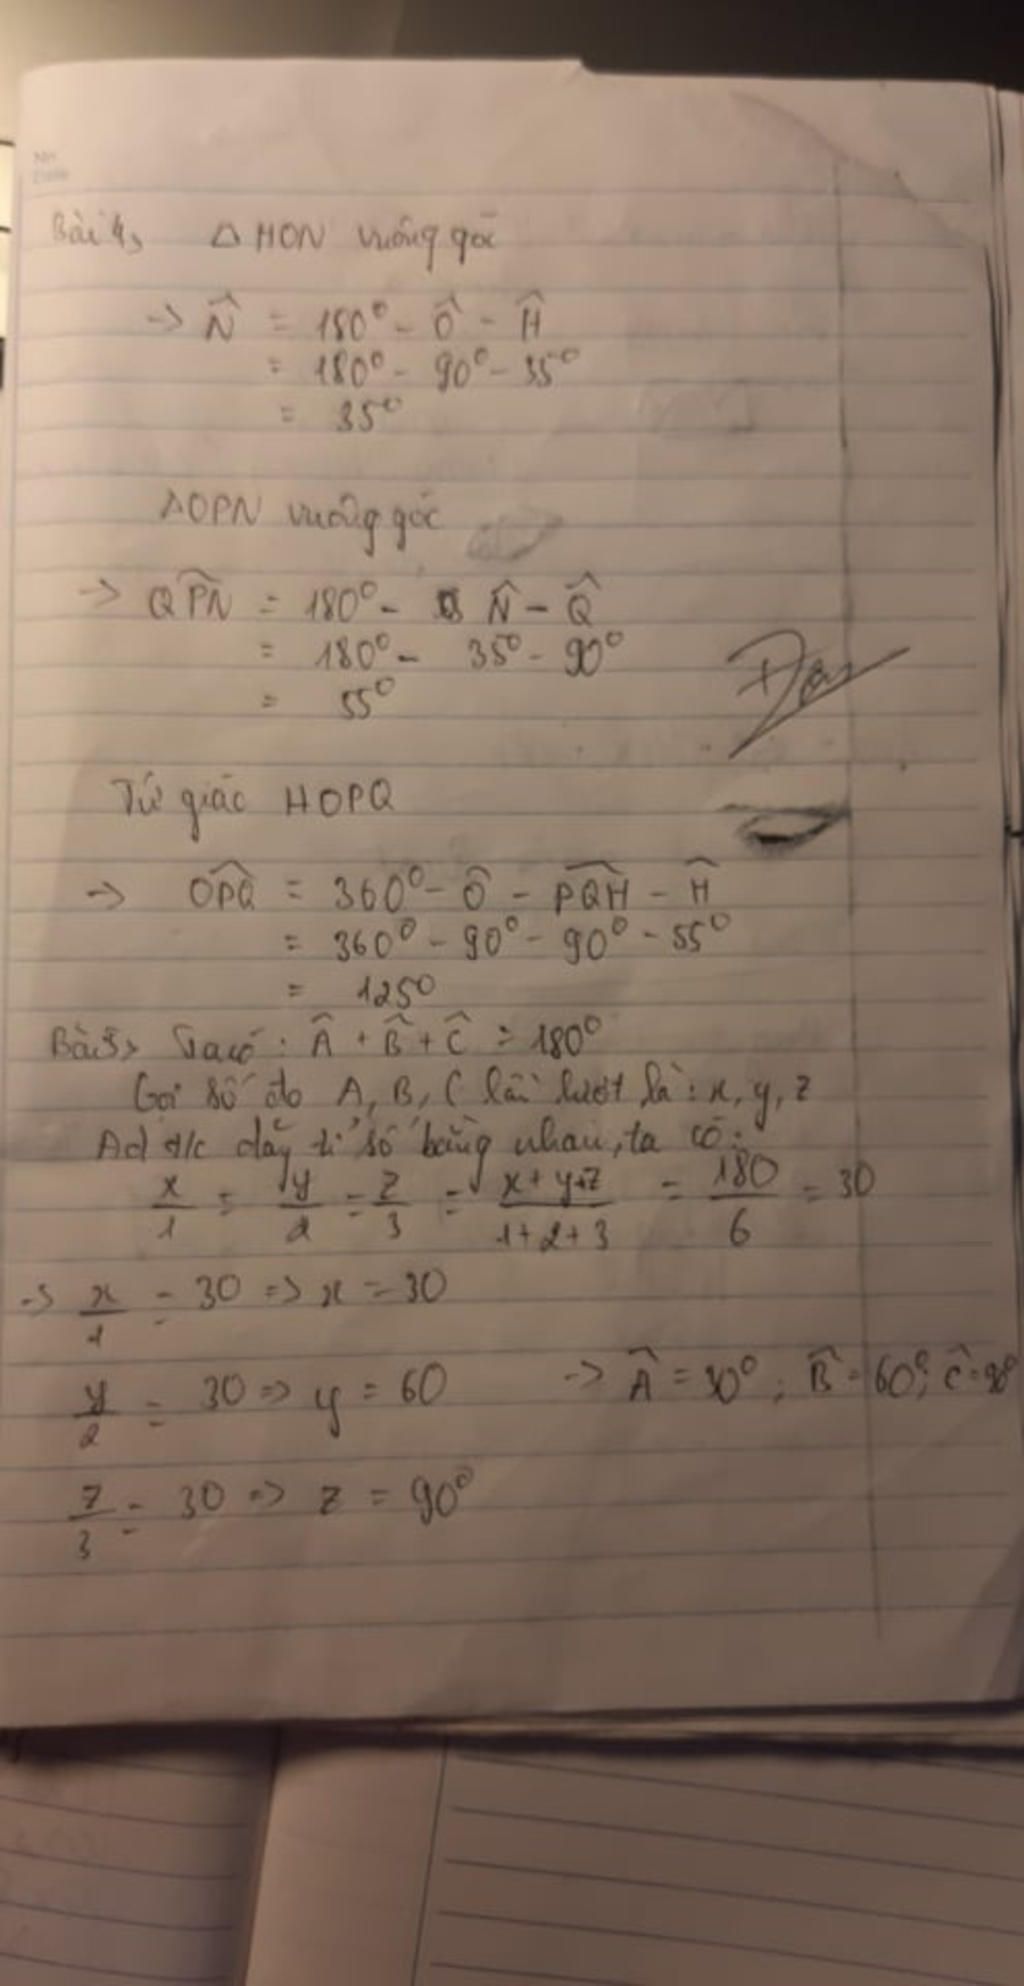 Bài 4, △ HON vuông góc
→ N̂ = 180° - Ô - Ĥ
= 180° - 90° - 55°
= 35°
△OPN vuông góc
→ QP̂N = 180° - N̂ - Q̂
= 180° - 35° - 90°
= 55°
Tứ giác HOPQ
→ OP̂Q = 360° - Ô - PQ̂H - Ĥ
= 360° - 90° - 90° - 55°
= 125°
Bài 5, Ta có: Â + B̂ + Ĉ = 180°
Gọi số đo A, B, C lần lượt là: x, y, z
Ad t/c dãy tỉ số bằng nhau, ta có:
x/1 = y/2 = z/3 = x+y+z/1+2+3 = 180/6 = 30
→ x/1 = 30 => x = 30
y/2 = 30 => y = 60 → Â = 30°; B̂ = 60°; Ĉ = 90°
z/3 = 30 => z = 90°